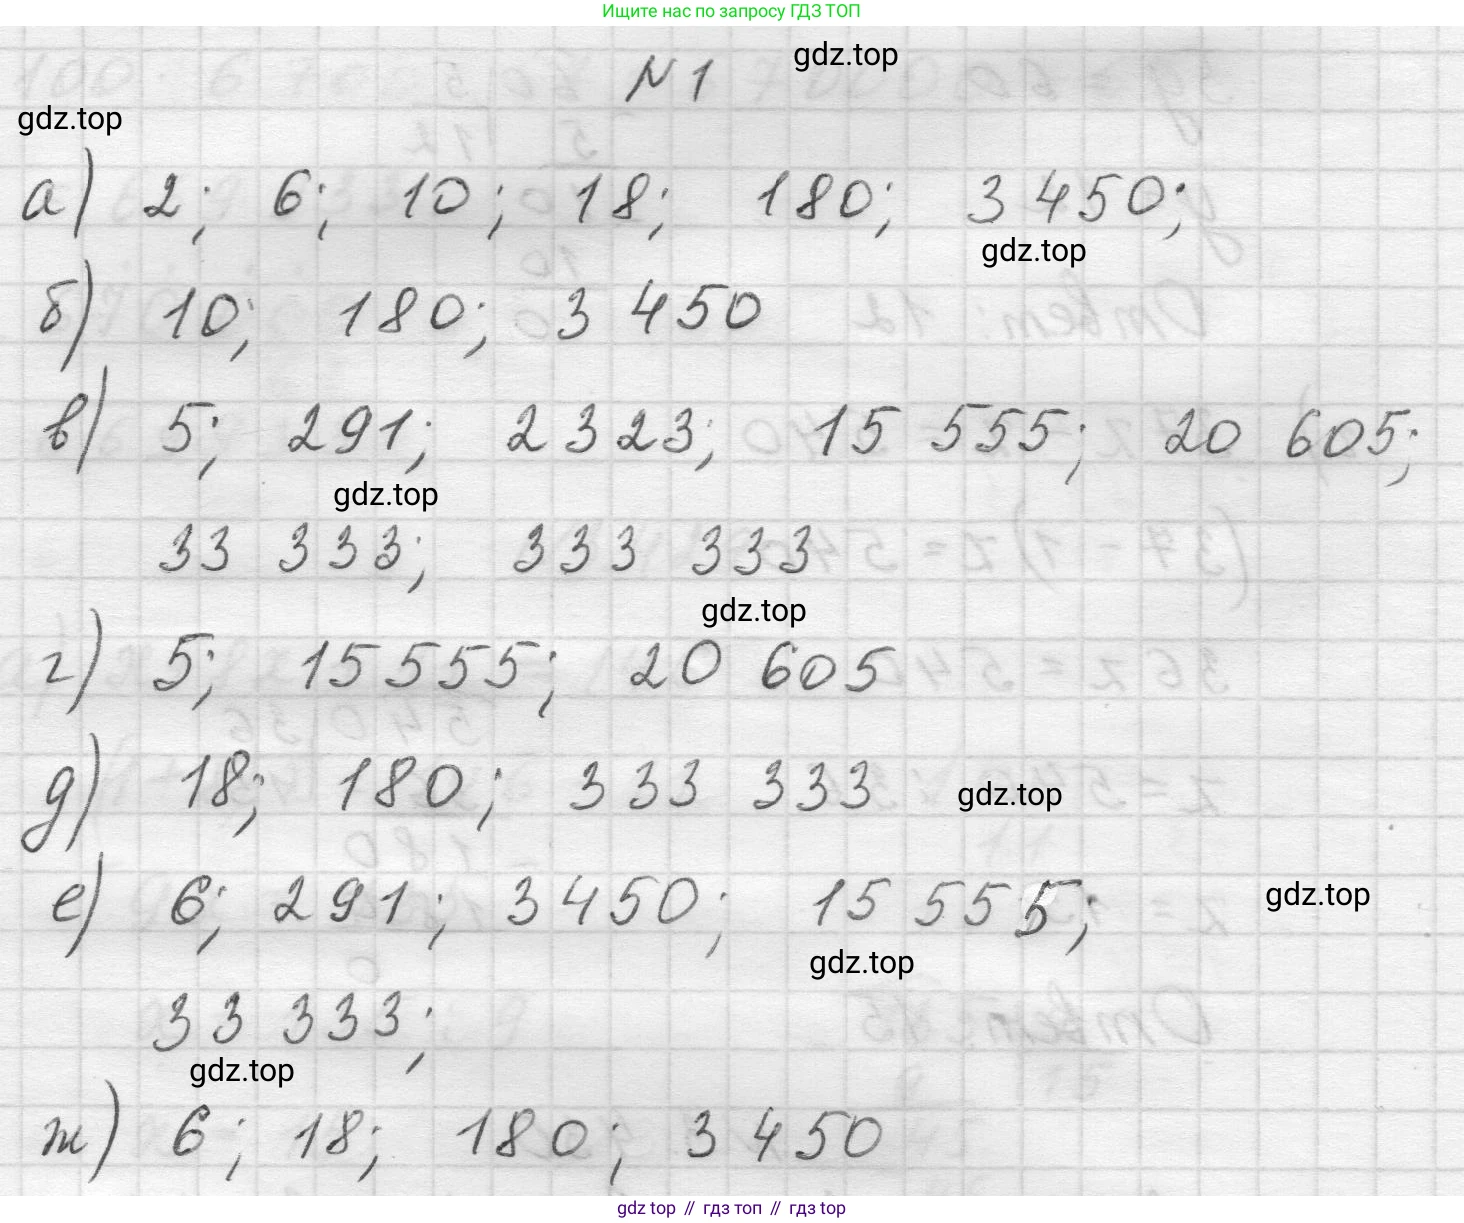 Ищите нас по запросу ГДЗ ТОП
gdz.top
№1
gdz.top
а) 2; 6; 10; 18; 180; 3 450;
gdz.top
б) 10; 180; 3 450
в) 5; 291; 2 323; 15 555; 20 605;
gdz.top
33 333; 333 333
gdz.top
г) 5; 15 555; 20 605
д) 18; 180; 333 333
gdz.top
е) 6; 291; 3 450; 15 555;
gdz.top
gdz.top
33 333;
gdz.top
ж) 6; 18; 180; 3 450
gdz top // гдз топ // гдз top